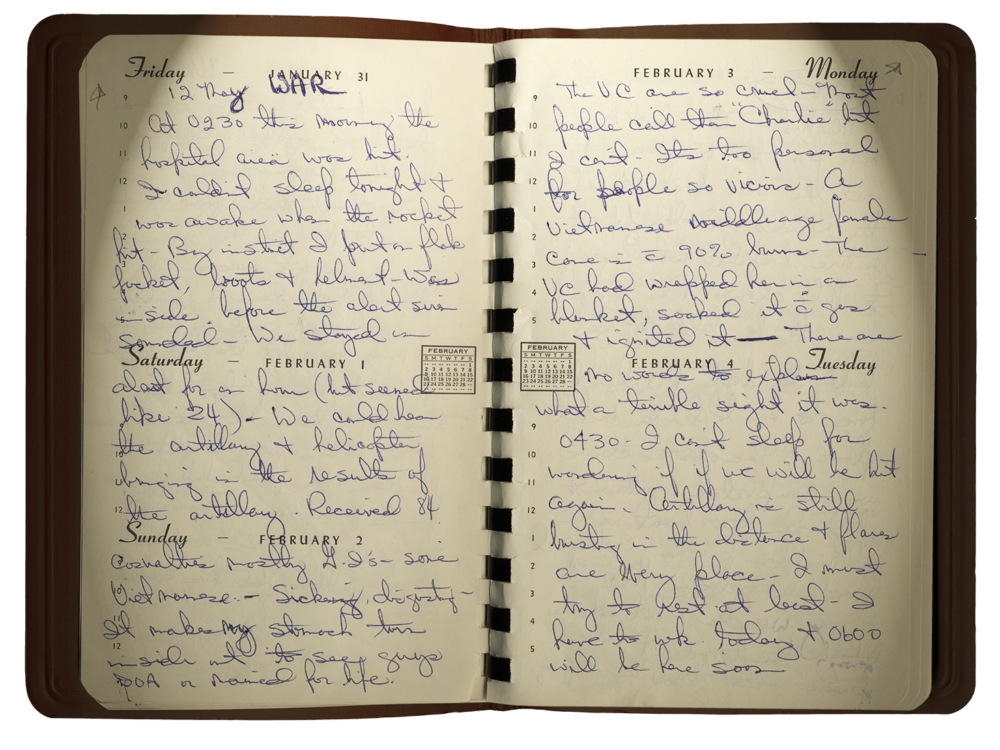 Friday — JANUARY 31
12 May WAR
At 0230 this morning the
hospital area was hit.
I couldn't sleep tonight &
was awake when the rocket
hit - By instinct I put on flak
jacket, boots & helmet - Was
inside before the alert siren
sounded - We stayed on
Saturday — FEBRUARY 1
alert for an hour (but seemed
like 24) - We could hear
the artillary & helicopter
bringing in the results of
the artillary. Received 84
Sunday — FEBRUARY 2
Casualties mostly G.I's - some
Vietnamese - Sickening, disgusting -
It makes my stomach turn
inside out to see guys
DOA or maimed for life.
FEBRUARY
S M T W T F S
1
2 3 4 5 6 7 8
9 10 11 12 13 14 15
16 17 18 19 20 21 22
23 24 25 26 27 28
FEBRUARY 3 — Monday
The VC are so cruel - Most
people call them "Charlie" but
I can't - Its too personal
for people so vicious - A
Vietnamese middleage female
came in c̄ 90% burns - The
VC had wrapped her in a
blanket, soaked it c̄ gas
& ignited it — There are
FEBRUARY 4 — Tuesday
no words to explain
what a terrible sight it was.
0430 - I can't sleep for
wondering if if we will be hit
again. Artillary is still
bursting in the distance & flares
are every place - I must
try to rest at least - I
have to wk. today & 0600
will be here soon
FEBRUARY
S M T W T F S
1
2 3 4 5 6 7 8
9 10 11 12 13 14 15
16 17 18 19 20 21 22
23 24 25 26 27 28